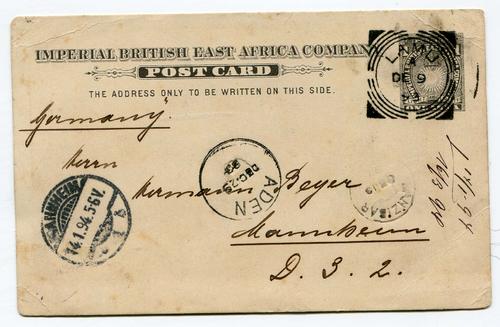 IMPERIAL BRITISH EAST AFRICA COMPANY
POST CARD
THE ADDRESS ONLY TO BE WRITTEN ON THIS SIDE.
LAMU
A
DE 9
93
Germany
Herrn
Hermann Beyer
Mannheim
D. 3. 2.
ADEN
DEC. 29
93
ZANZIBAR
MANNHEIM
14.1.94.5-6V.